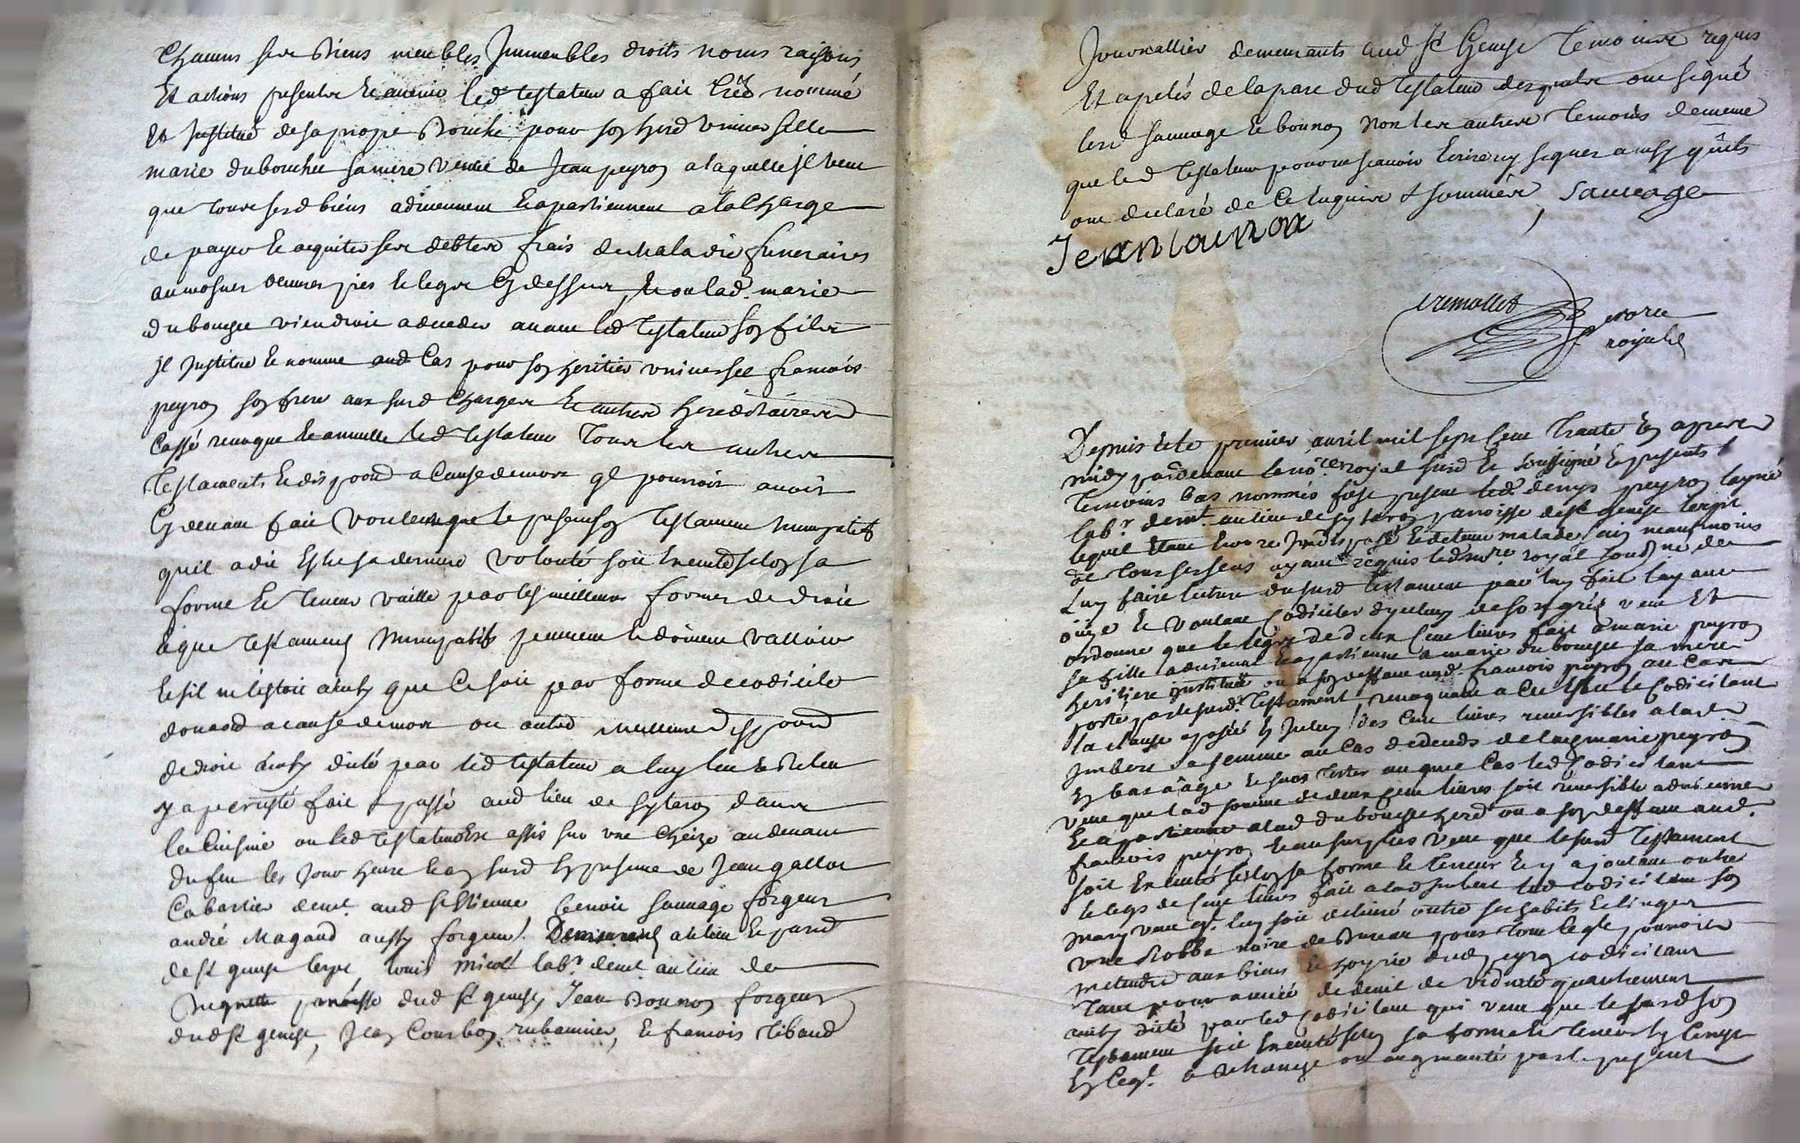 Chacuns ses Biens meubles Immeubles droits noms raisons
Et actions presents & avenir led testateur a fait crée nommé
Et Institué de sa propre Bouche pour son herd universelle
marie duboucher sa mere veuve de Jean peyron a laquelle il veut
que tous sesd biens adviennent & apartiennent a la Charge
de payer & aquiter ses debtes frais de maladie funeraires
aumosnes oeuvres pies & legs Cy dessus, & ou lad. marie
duboucher viendroit a deceder avant led testateur son fils
il Institue & nomme aud Cas pour son heritier universel francois
peyron son frere aux susd Charges & autres hereditaires
Cassé revoque & annulle led testateur tous les autres
testaments & dispoond a Cause de mort ql pourroit avoir
Cy devant fait voulant que le present son testament nuncupatif
quil a dit Estre sa derniere volonté soit Executé selon sa
forme & teneur vaille par les meilleures formes de droit
que testament nuncupatifs peuvent & doivent valloir
& sil ne lestoit ainsy que Ce soit par forme de codicile
donaond a cause de mort ou autre meilleure dispoond
de droit ainsy dicté par led testateur a luy leu & releu
y a persisté fait & passé aud lieu de sytaron dans
la Cuisine ou led testateur Est assis sur une Cheize au devant
du feu les jour heure & an susd En presence de Jean gallot
Cabartier demt. aud st Etienne benoit sauvage forgeur
andré Magand aussy forgeur Demeurant au lieu &
de st genest lerpt, louis micol labr. demt. au lieu de
parroisse dud st genest, Jean Bounon forgeur
dud st genest, Jean Courbon rubannier, & francois tibaud
Journallier demeurants aud St Genest temoins requis
Et apelés de la part dud testateur desquels ont signé
lesd sauvage & bounon non les autres temoins de meme
que led testateur pour ne scavoir Ecrire ny signer ainsy qu'ils
ont declaré de Ce Enquis & sommés, Sauvage
Jean bounon
nore
royal
Depuis & le premier avril mil sept Cent trante un apres
midy pardevant le nore royal susd & soussigné & presents
temoins bas nommés fust present led denys peyron layné
labr. demt. au lieu de sytaron parroisse de st genest lerpt
lequel Etant Encore Indisposé & detenu malade sain neanmoins
de tous ses sens ayant requis led nore royal de
luy faire lecture du susd testament par luy fait layant
ouye & voulant Codiciler dyceluy de son gré veut Et
ordonne que le legs de deux Cent livres fait a marie peyron
sa fille advienne & apartienne a marie duboucher sa mere
heritiere Instituée ou a son deffaut aud. francois peyron au Cas
porté par le susd. testament, revoquant a Cet Effet le Codicilant
la clause aposée En Iceluy des Cent livres reversibles a lad
Imbert sa femme au Cas de deceds de lad marie peyron
En bas aage & sans tester au quel Cas led Codicilant
veut que lad somme de deux Cent livres soit reversible advienne
& apartienne a lad duboucher herd ou a son deffaut aud.
francois peyron & au surplus veut que le susd testament
soit Executé selon sa forme & teneur & y ajoutant outre
le legs de Cent livres fait a lad Imbert led codicilant son
mary veut ql. luy soit delivré outre ses habits & linges
une Robbe noire de Bureau pour tout Ce ql. pourroit
pretendre aux biens & hoyrie dud peyron codicilant
tant pour année de deuil de viduité quautrement
ainsy dicté par led Codicilant qui veut que le susd son
testament soit Executé selon sa forme & teneur
En Ce ql. a Echangé ou augmenté par le present